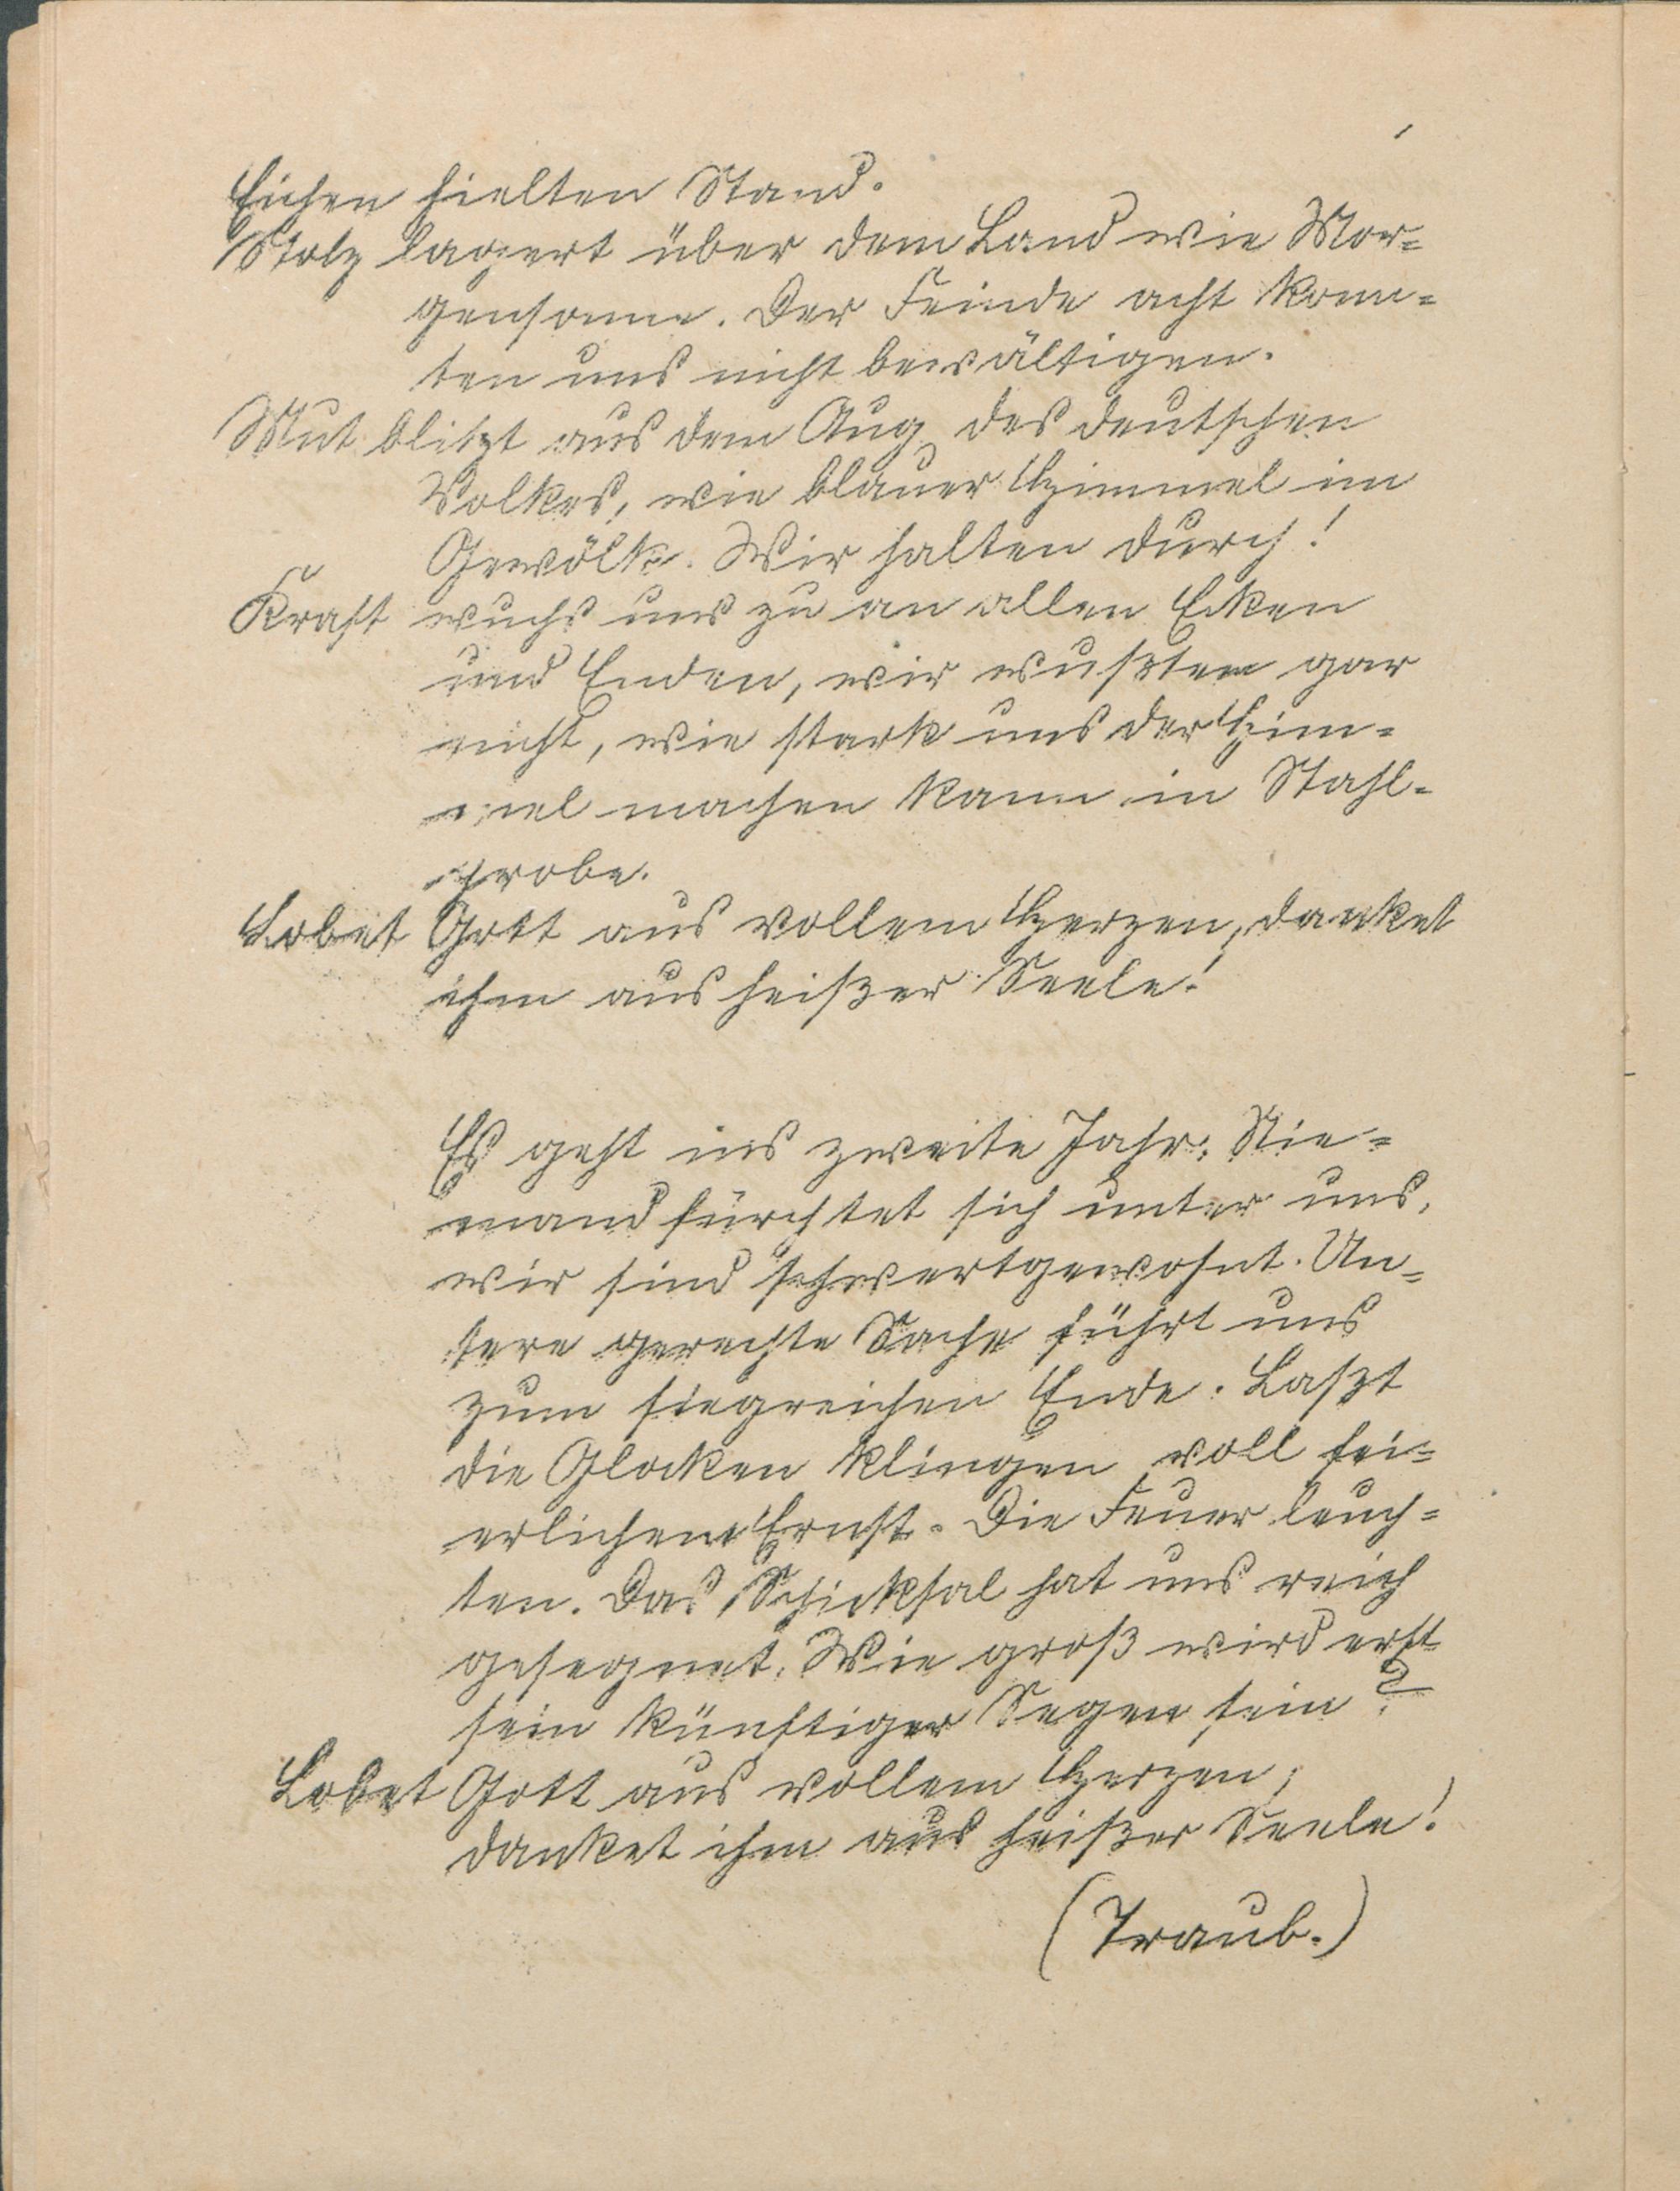 Eichen hielten Stand.
Stolz lagert über dem Land wie Mor-
gensonne. Der Feinde acht konn-
ten uns nicht bewältigen.
Mut blitzt aus dem Aug des deutschen
Volkes, wie blauer Himmel im
Gewölk. Wir halten durch!
Kraft wuchs uns zu an allen Ecken
und Enden, wir wußten gar
nicht, wie stark uns der Him-
mel machen kann in Stahl-
probe.
Lobet Gott aus vollem Herzen, danket
ihm aus heißer Seele!
Es geht ins zweite Jahr. Nie-
mand fürchtet sich unter uns,
wir sind schwertgewohnt. Un-
sere gerechte Sache führt uns
zum siegreichen Ende. Laßt
die Glocken klingen voll fei-
erlichem Ernst. Die Feuer leuch-
ten. Das Schicksal hat uns reich
gesegnet. Wie groß wird erst
sein künftiger Segen sein?
Lobet Gott aus vollem Herzen,
danket ihm aus heißer Seele!
(Traub.)